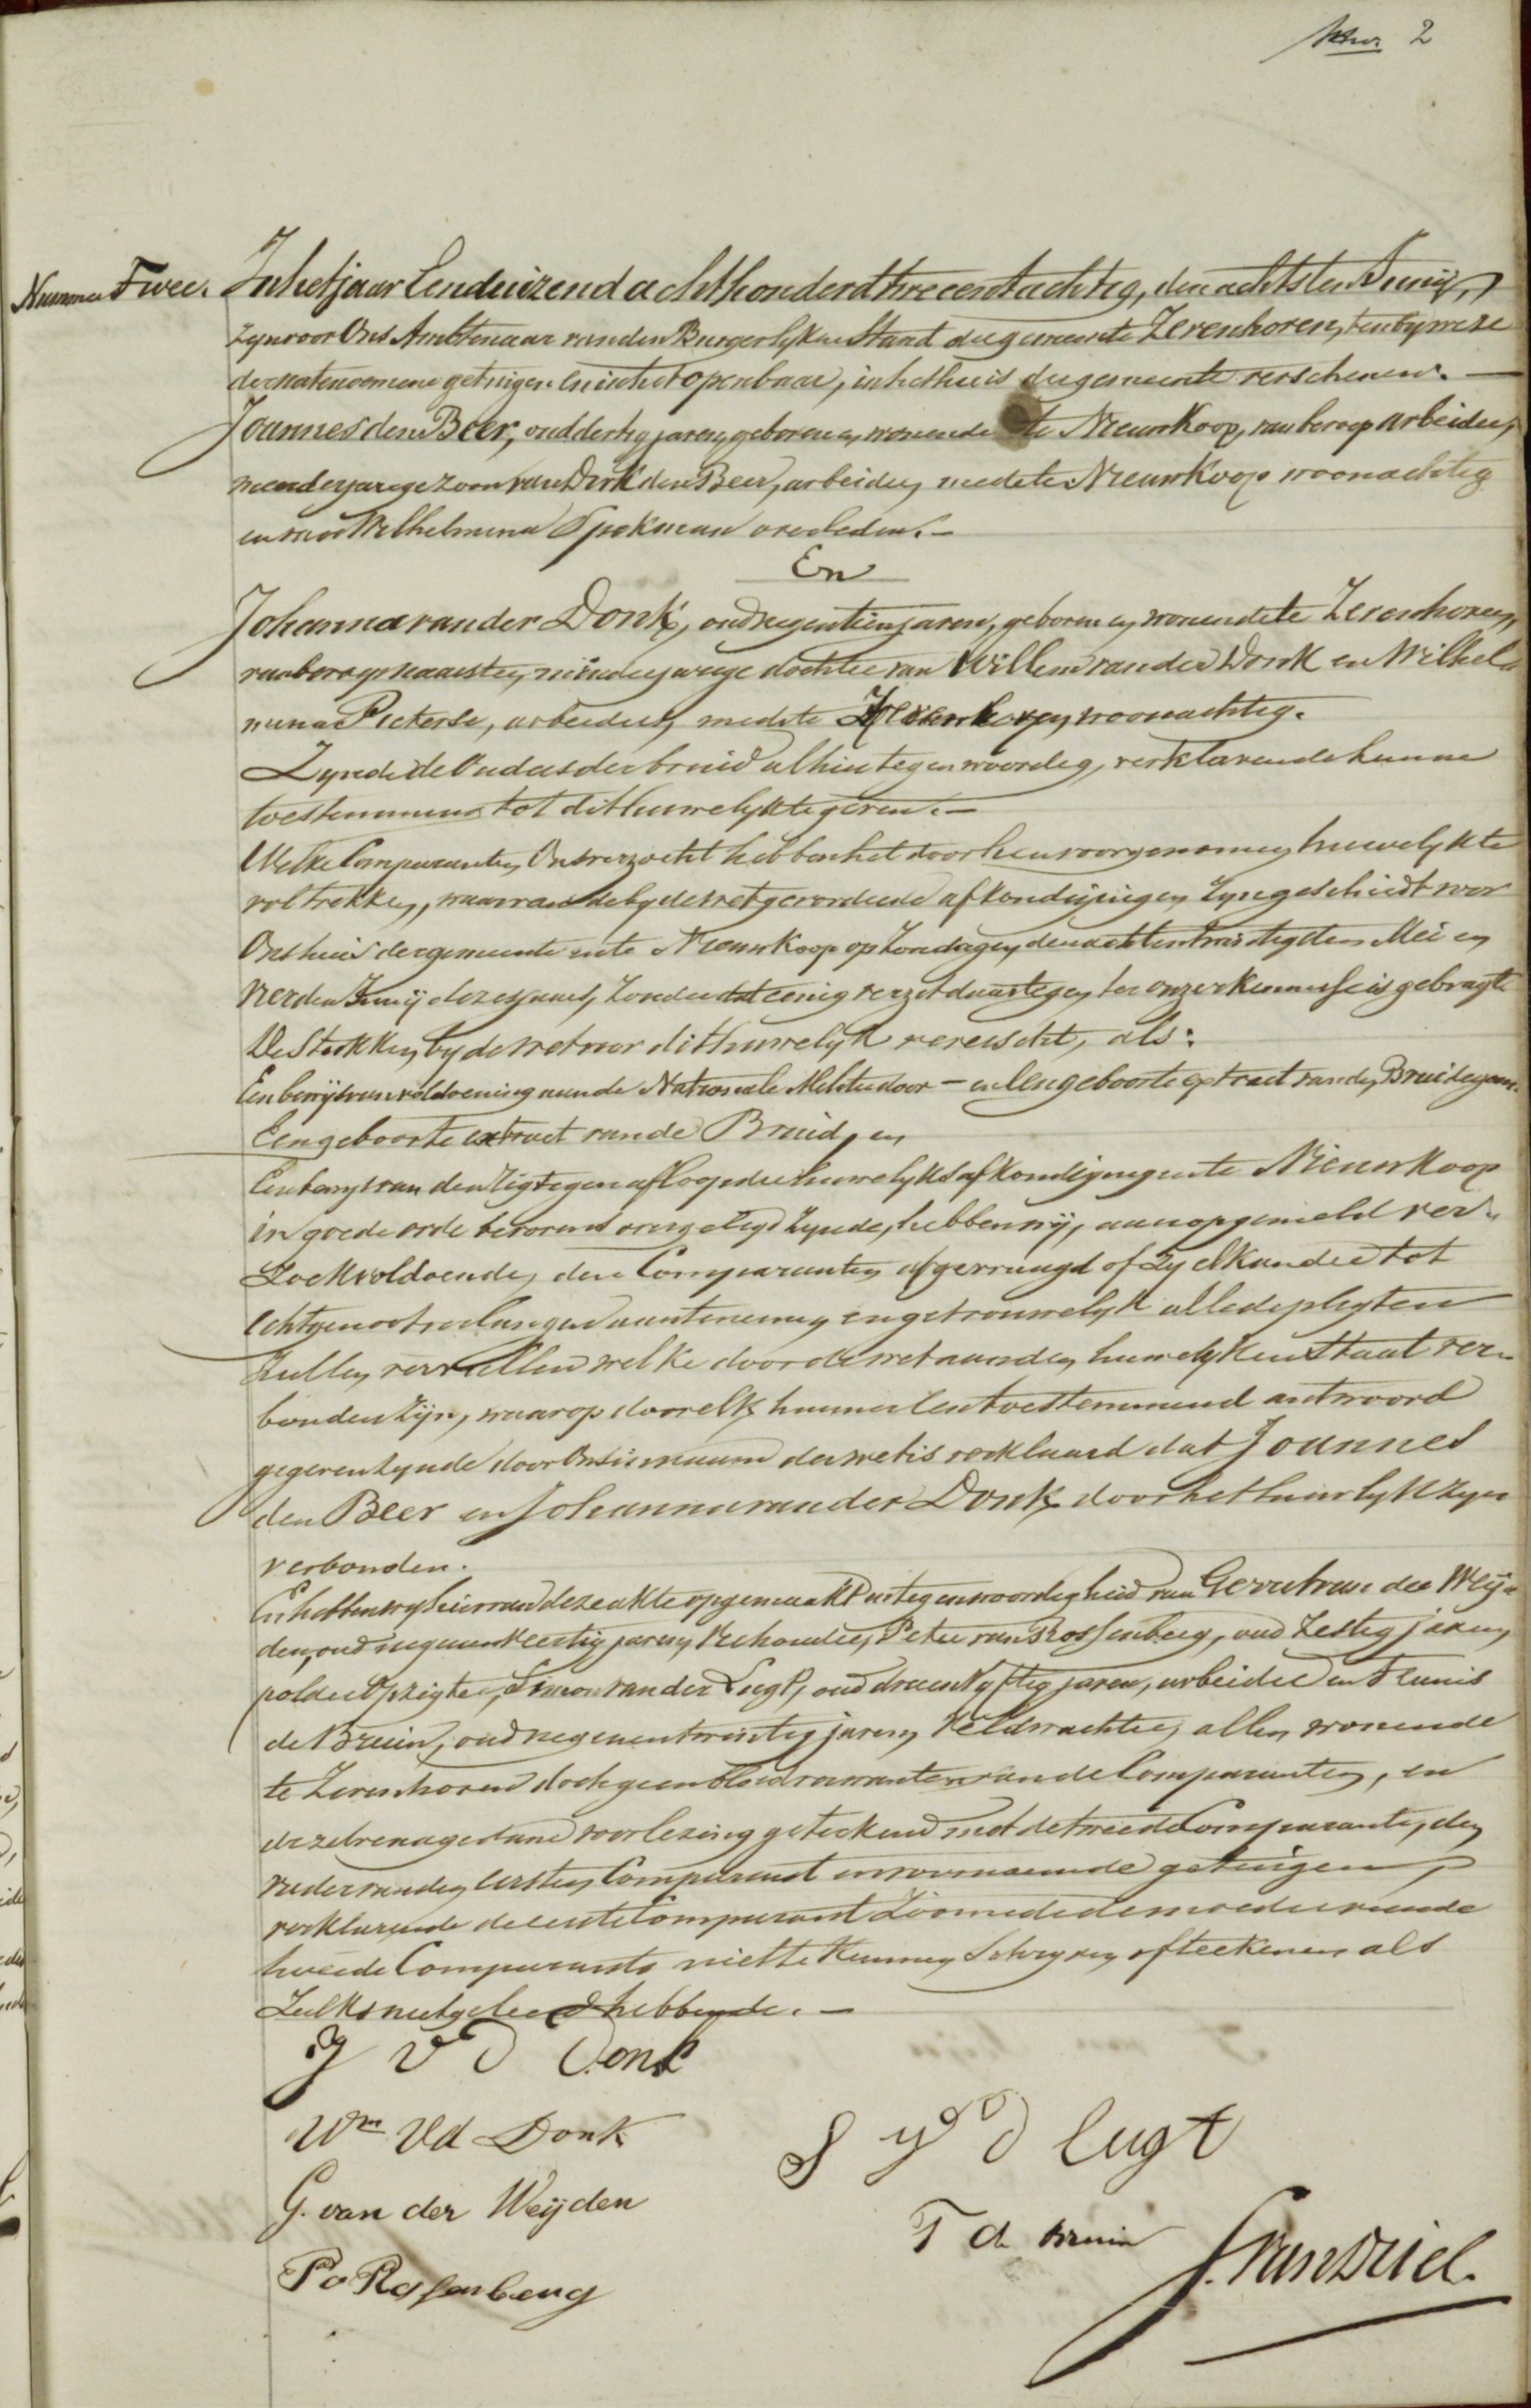 2
Nummer Twee.
In het jaar Eenduizend achthonderd drie en tachtig, den achtsten Junij,
zyn voor Ons Ambtenaar van den Burgerlyken Stand der gemeente Zevenhoven, ten bywezen
der natenoemene getuigen en in het openbaar, in het huis der gemeente verschenen. —
Joannes den Beer, oud dertig jaren, geboren en wonende te Nieuwkoop, van beroep arbeider,
meerderjarige zoon van Dirk den Beer, arbeider, mede te Nieuwkoop woonachtig
en van Wilhelmina Spekman overleden. —
En
Johanna van der Donk, oud negentien jaren, geboren en wonende te Zevenhoven,
van beroep naaister, minderjarige dochter van Willem van der Donk en Wilhel-
mina Pieterse, arbeiders, mede te Zevenhoven, woonachtig.
Zynde de Ouders der bruid alhier tegenwoordig, verklarende hunne
toestemming tot dit huwelyk te geven. —
Welke Comparanten Ons verzocht hebben het door hen voorgenomen huwelyk te
voltrekken, waarvan de by de wet gevorderde afkondigingen zyn geschiedt voor
Ons huis der gemeente en te Nieuwkoop op Zondagen den achtentwintigsten Mei en
Vierden Junij dezes jaars, zonder dat eenig verzet daartegen ter onzer kennisse is gebragt
De Stukken by de wet voor dit huwelyk vereischt, als:
Een bewijs van voldoening aan de Nationale Militie door - en Een geboorte extract van den Bruidegom.
Een geboorte extract van de Bruid, en
Een bewys van den afloop der huwelyks afkondigingen te Nieuwkoop
in goede orde bevorens overgelegd zynde, hebben wij, aan opgemeld ver-
zoek voldoende, den Comparanten afgevraagd of Zy elkander tot
Echtgenoot verlangen aantenemen en getrouwelyk alle de pligten
zullen vervullen welke door de wet aan den huwelyken Staat ver-
bonden zijn, waarop door elk hunner een toestemmend antwoord
gegeven zynde door Ons in naam der wet is verklaard dat Joannes
den Beer en Johanna van der Donk door het huwelyk zyn
verbonden.
En hebben wy hiervan deze akte opgemaakt in tegenwoordigheid van Gerrit van der Weij-
den, oud negenenveertig jaren, Veehouder, Peter van Rossenberg, oud Zestig jaren,
polder Opzigter, Simon van der Lugt, oud drieenvyftig jaren, arbeider en Teunis
de Bruin, oud negenentwintig jaren, Veldwachter, allen wonende
te Zevenhoven doch geen bloedverwanten van de Comparanten, en
dezelve na gedane voorlezing geteekend met de tweede Comparante, den
Vader van den eersten Comparant en voornoemde getuigen,
verklarende de eerste Comparant Zoomede de moeder van de
tweede Comparante niet te kunnen Schryven of teekenen als
Zulks niet geleerd hebbende. —
J v D Donk
Wm Vd Donk
S v D lugt
G. van der Weijden
T de Bruin
P v Rossenberg
J. van Driel.